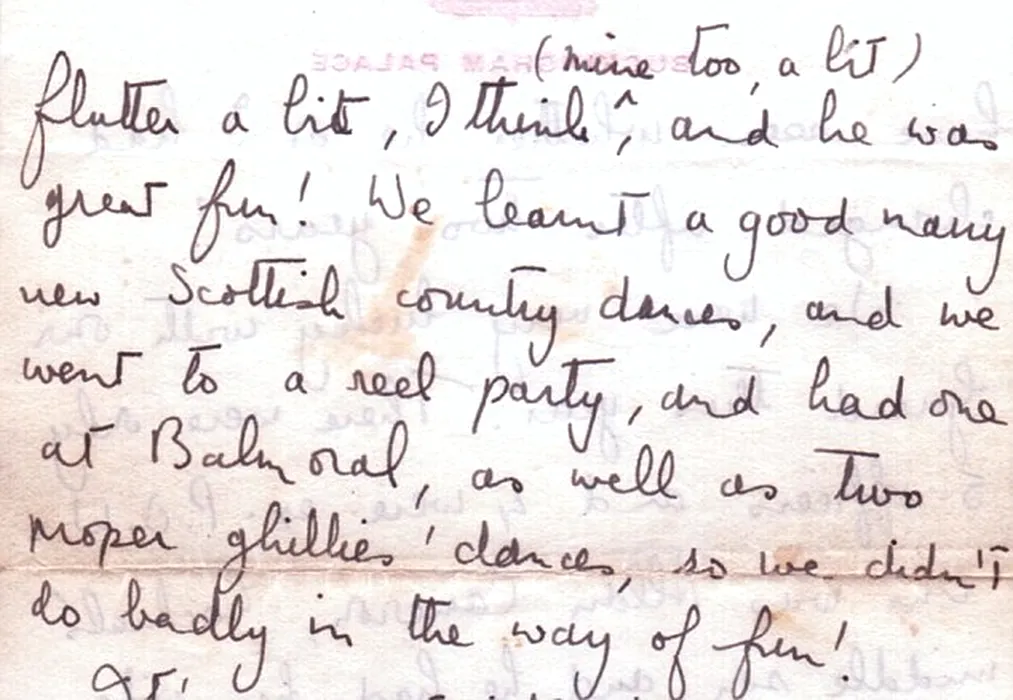 BUCKINGHAM PALACE
(mine too, a bit)
flutter a bit, I think^, and he was
great fun! We learnt a good many
new Scottish country dances, and we
went to a reel party, and had one
at Balmoral, as well as two
proper ghillies' dances, so we didn't
do badly in the way of fun!